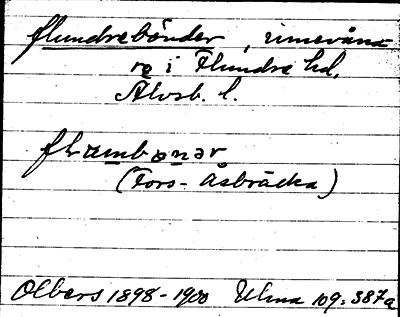 flundrebönder, innevåna-
re i Flundre hd,
Älvsb. l.
flrambønar
(Fors-Åsbräcka)
Olbers 1898-1900 Ulma 109:387a